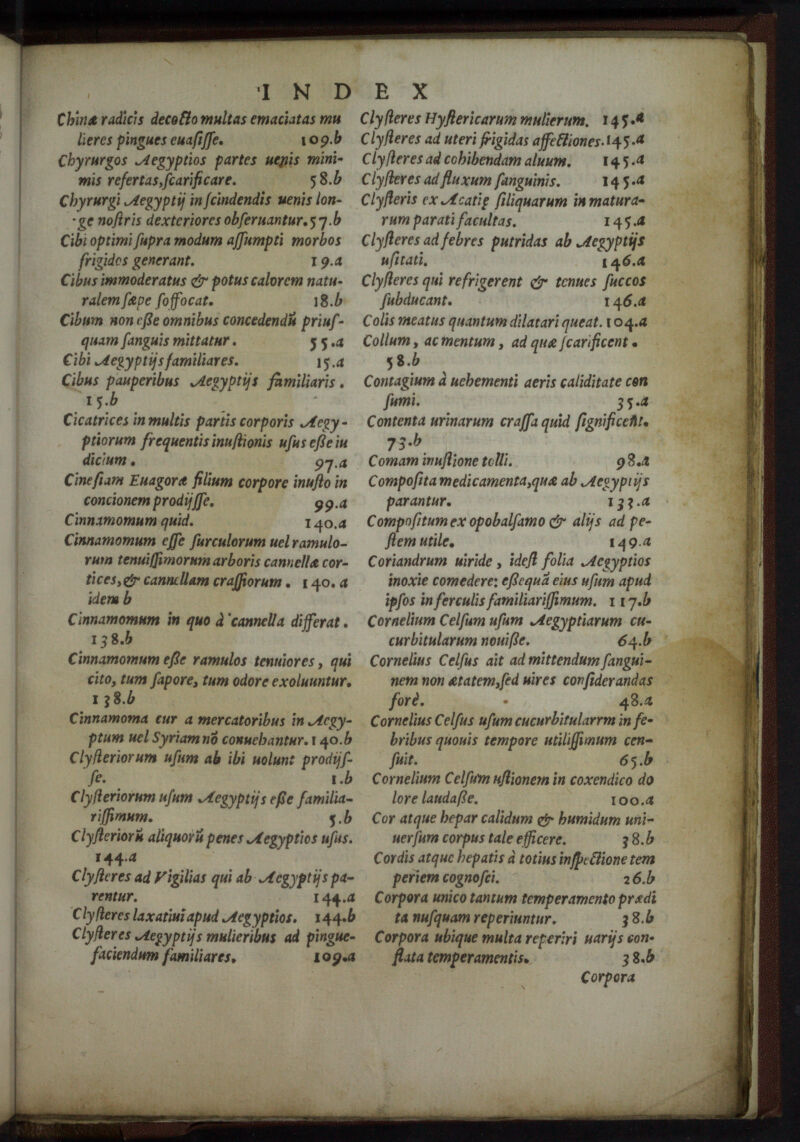 INDEX
Chinæ radicis decocto multas emaciatas mu
lieres pingues euasisse. 109.b
Chyrurgos Aegyptios partes uenis mini-
mis refertas, scarificare. 58.b
Chyrurgi Aegyptij in scindendis uenis lon-
ge nostris dexteriores obseruantur. 57.b
Cibi optimi supra modum assumpti morbos
frigidos generant. 19.a
Cibus immoderatus & potus calorem natu-
ralem sæpe soffocat. 18.b
Cibum non esse omnibus concedendū prius-
quam sanguis mittatur. 55.a
Cibi Aegyptijs familiares. 15.a
Cibus pauperibus Aegyptijs familiaris.
15.b
Cicatrices in multis partis corporis Aegy-
ptiorum frequentis inustionis usus esse iu
dicium. 97.a
Cinesiam Euagoræ filium corpore inusto in
concionem prodijsse. 99.a
Cinnamomum quid. 140.a
Cinnamomum esse surculorum uel ramulo-
rum tenuissimorum arboris cannellæ cor-
tices, & cannellam crassiorum. 140.a
idem b
Cinnamomum in quo à cannella differat.
138.b
Cinnamomum esse ramulos tenuiores, qui
cito, tum sapore, tum odore exoluuntur.
138.b
Cinnamoma cur a mercatoribus in Aegy-
ptum uel Syriam nō conuehantur. 140.b
Clysteriorum usum ab ibi uolunt prodijs-
se. 1.b
Clysteriorum usum Aegyptijs esse familia-
rissimum. 5.b
Clysteriorū aliquorū penes Aegyptios usus.
144.a
Clysteres ad Vigilias qui ab Aegyptijs pa-
rentur. 144.a
Clysteres laxatiui apud Aegyptios. 144.b
Clysteres Aegyptijs mulieribus ad pingue-
faciendum familiares. 109.a
Clysteres Hystericarum mulierum. 145.a
Clysteres ad uteri frigidas affectiones. 145.a
Clysteres ad cohibendam aluum. 145.a
Clysteres ad fluxum sanguinis. 145.a
Clysteris ex Acatię siliquarum in matura-
rum parati facultas. 145.a
Clysteres ad febres putridas ab Aegyptijs
usitati. 146.a
Clysteres qui refrigerent & tenues succos
subducant. 146.a
Colis meatus quantum dilatari queat. 104.a
Collum, ac mentum, ad quæ scarificent.
58.b
Contagium à uehementi aeris caliditate con
sumi. 35.a
Contenta urinarum crassa quid significent.
73.b
Comam inustione tolli. 98.a
Composita medicamenta, quæ ab Aegyptijs
parantur. 133.a
Compositum ex opobalsamo & alijs ad pe-
stem utile. 149.a
Coriandrum uiride, idest folia Aegyptios
inoxie comedere: essequā eius usum apud
ipsos in ferculis familiarissimum. 117.b
Cornelium Celsum usum Aegyptiarum cu-
curbitularum nouisse. 64.b
Cornelius Celsus ait ad mittendum sangui-
nem non ætatem, sed uires considerandas
forè. 48.a
Cornelius Celsus usum cucurbitularrm in fe-
bribus quouis tempore utilissimum cen-
suit. 65.b
Cornelium Celsum ustionem in coxendico do
lore laudasse. 100.a
Cor atque hepar calidum & humidum uni-
uersum corpus tale efficere. 38.b
Cordis atque hepatis à totius inspectione tem
periem cognosci. 26.b
Corpora unico tantum temperamento prædi
ta nusquam reperiuntur. 38.b
Corpora ubique multa reperiri uarijs con-
flata temperamentis. 38.b
Corpora